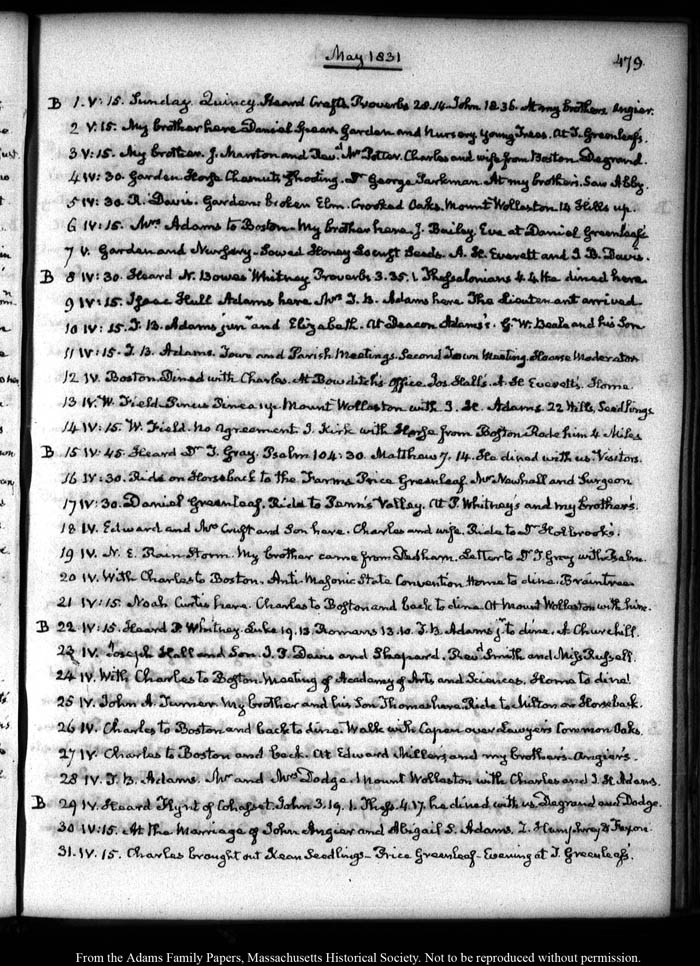 May 1831
479
B 1. V: 15. Sunday. Quincy. Heard Crafts. Proverbs 28.14. John 18.36. At my brothers. Angier.
2 V. 15. My brother here Daniel Spear Garden and Nursery young Trees. At T. Greenleaf's.
3 V: 15. My brother. J. Marston and Revd. Mr Potter. Charles and wife from Boston. Degrand.
4 IV: 30. Garden Horse Chesnuts shooting. Dr. George Parkman. At my brother's. Saw Abby.
5 IV: 30. R. Davis. Garden broken Elm. Crooked Oaks. Mount Wollaston 14 Hills up.
6 IV: 15. Mrs Adams to Boston. My brother here J. Bailey. Eve at Daniel Greenleaf's
7 V. Garden and Nursery. Sowed Honey Locust Seeds. A. H. Everett and J. B. Davis.
B 8 IV: 30. Heard N. Bowes Whitney Proverbs 3.35. 1. Thessalonians 4.4. He dined here
9 IV: 15. Isaac Hull Adams here. Mrs T. B. Adams here The Lieutenant arrived.
10 IV: 15. T. B. Adams junr. and Elizabeth. At Deacon Adams's. G. W. Beale and his Son
11 IV: 15. T. B. Adams. Town and Parish Meetings. Second Town Meeting. Moderator
12 IV. Boston. Dined with Charles. At Bowditch's Office. Jos. Hall's. A. H. Everett's. Home.
13 IV. W. Field. Pinus Pinea 1 yr. Mount Wollaston with I. H. Adams. 22 Hills, Seedlings
14 IV: 15. W. Field. no agreement. J. Kirk with Horse from Boston. Rode him 4 Miles
B 15 IV: 45. Heard Dr T. Gray. Psalm 104: 30. Matthew 7. 14. He dined with us. Visitors.
16 IV: 30. Ride on Horseback to the Farms Price Greenleaf. Mr Newhall and Surgeon
17 IV: 30. Daniel Greenleaf. Ride to Penn's Valley. At P. Whitney's and my brother's.
18 IV. Edward and Mrs Cruft and Son here. Charles and wife. Ride to Dr. Holbrook's.
19 IV. N. E. Rain Storm. My brother came from Dedham. Letter to Dr. T. Gray with Psalm.
20 IV. With Charles to Boston. Anti-Masonic State Convention Home to dine. Braintree
21 IV: 15. Noah Curtis here. Charles to Boston and back to dine. At Mount Wollaston with him.
B 22 IV: 15. Heard P. Whitney. Luke 19. 13 Romans 13. 10. T. B. Adams jr. to dine. A. Churchill.
23 IV. Joseph Hall and Son. J. B. Davis and Shepard. Revd. Smith and Miss Russell.
24 IV. With Charles to Boston. Meeting of Academy of Arts, and Sciences. Home to dine
25 IV. John A. Turner. My brother and his Son Thomas here. Ride to Milton on Horseback.
26 IV. Charles to Boston and back to dine. Walk with Capen over Lawyers Common Oaks.
27 IV. Charles to Boston and back. At Edward Millers, and my brother's. Angier's.
28 IV. T. B. Adams. Mr and Mrs Dodge. Mount Wollaston with Charles and I. H. Adams.
B 29 IV. Heard Flynt of Cohasset. John 3. 19. 1. Thess. 4. 17. he dined with us. Degrand and Dodge.
30 IV: 15. At the Marriage of John Angier and Abigail S. Adams. L. Humphrey &
31. IV. 15. Charles brought out Kean Seedlings. Price Greenleaf. Evening at T. Greenleafs.
From the Adams Family Papers, Massachusetts Historical Society. Not to be reproduced without permission.